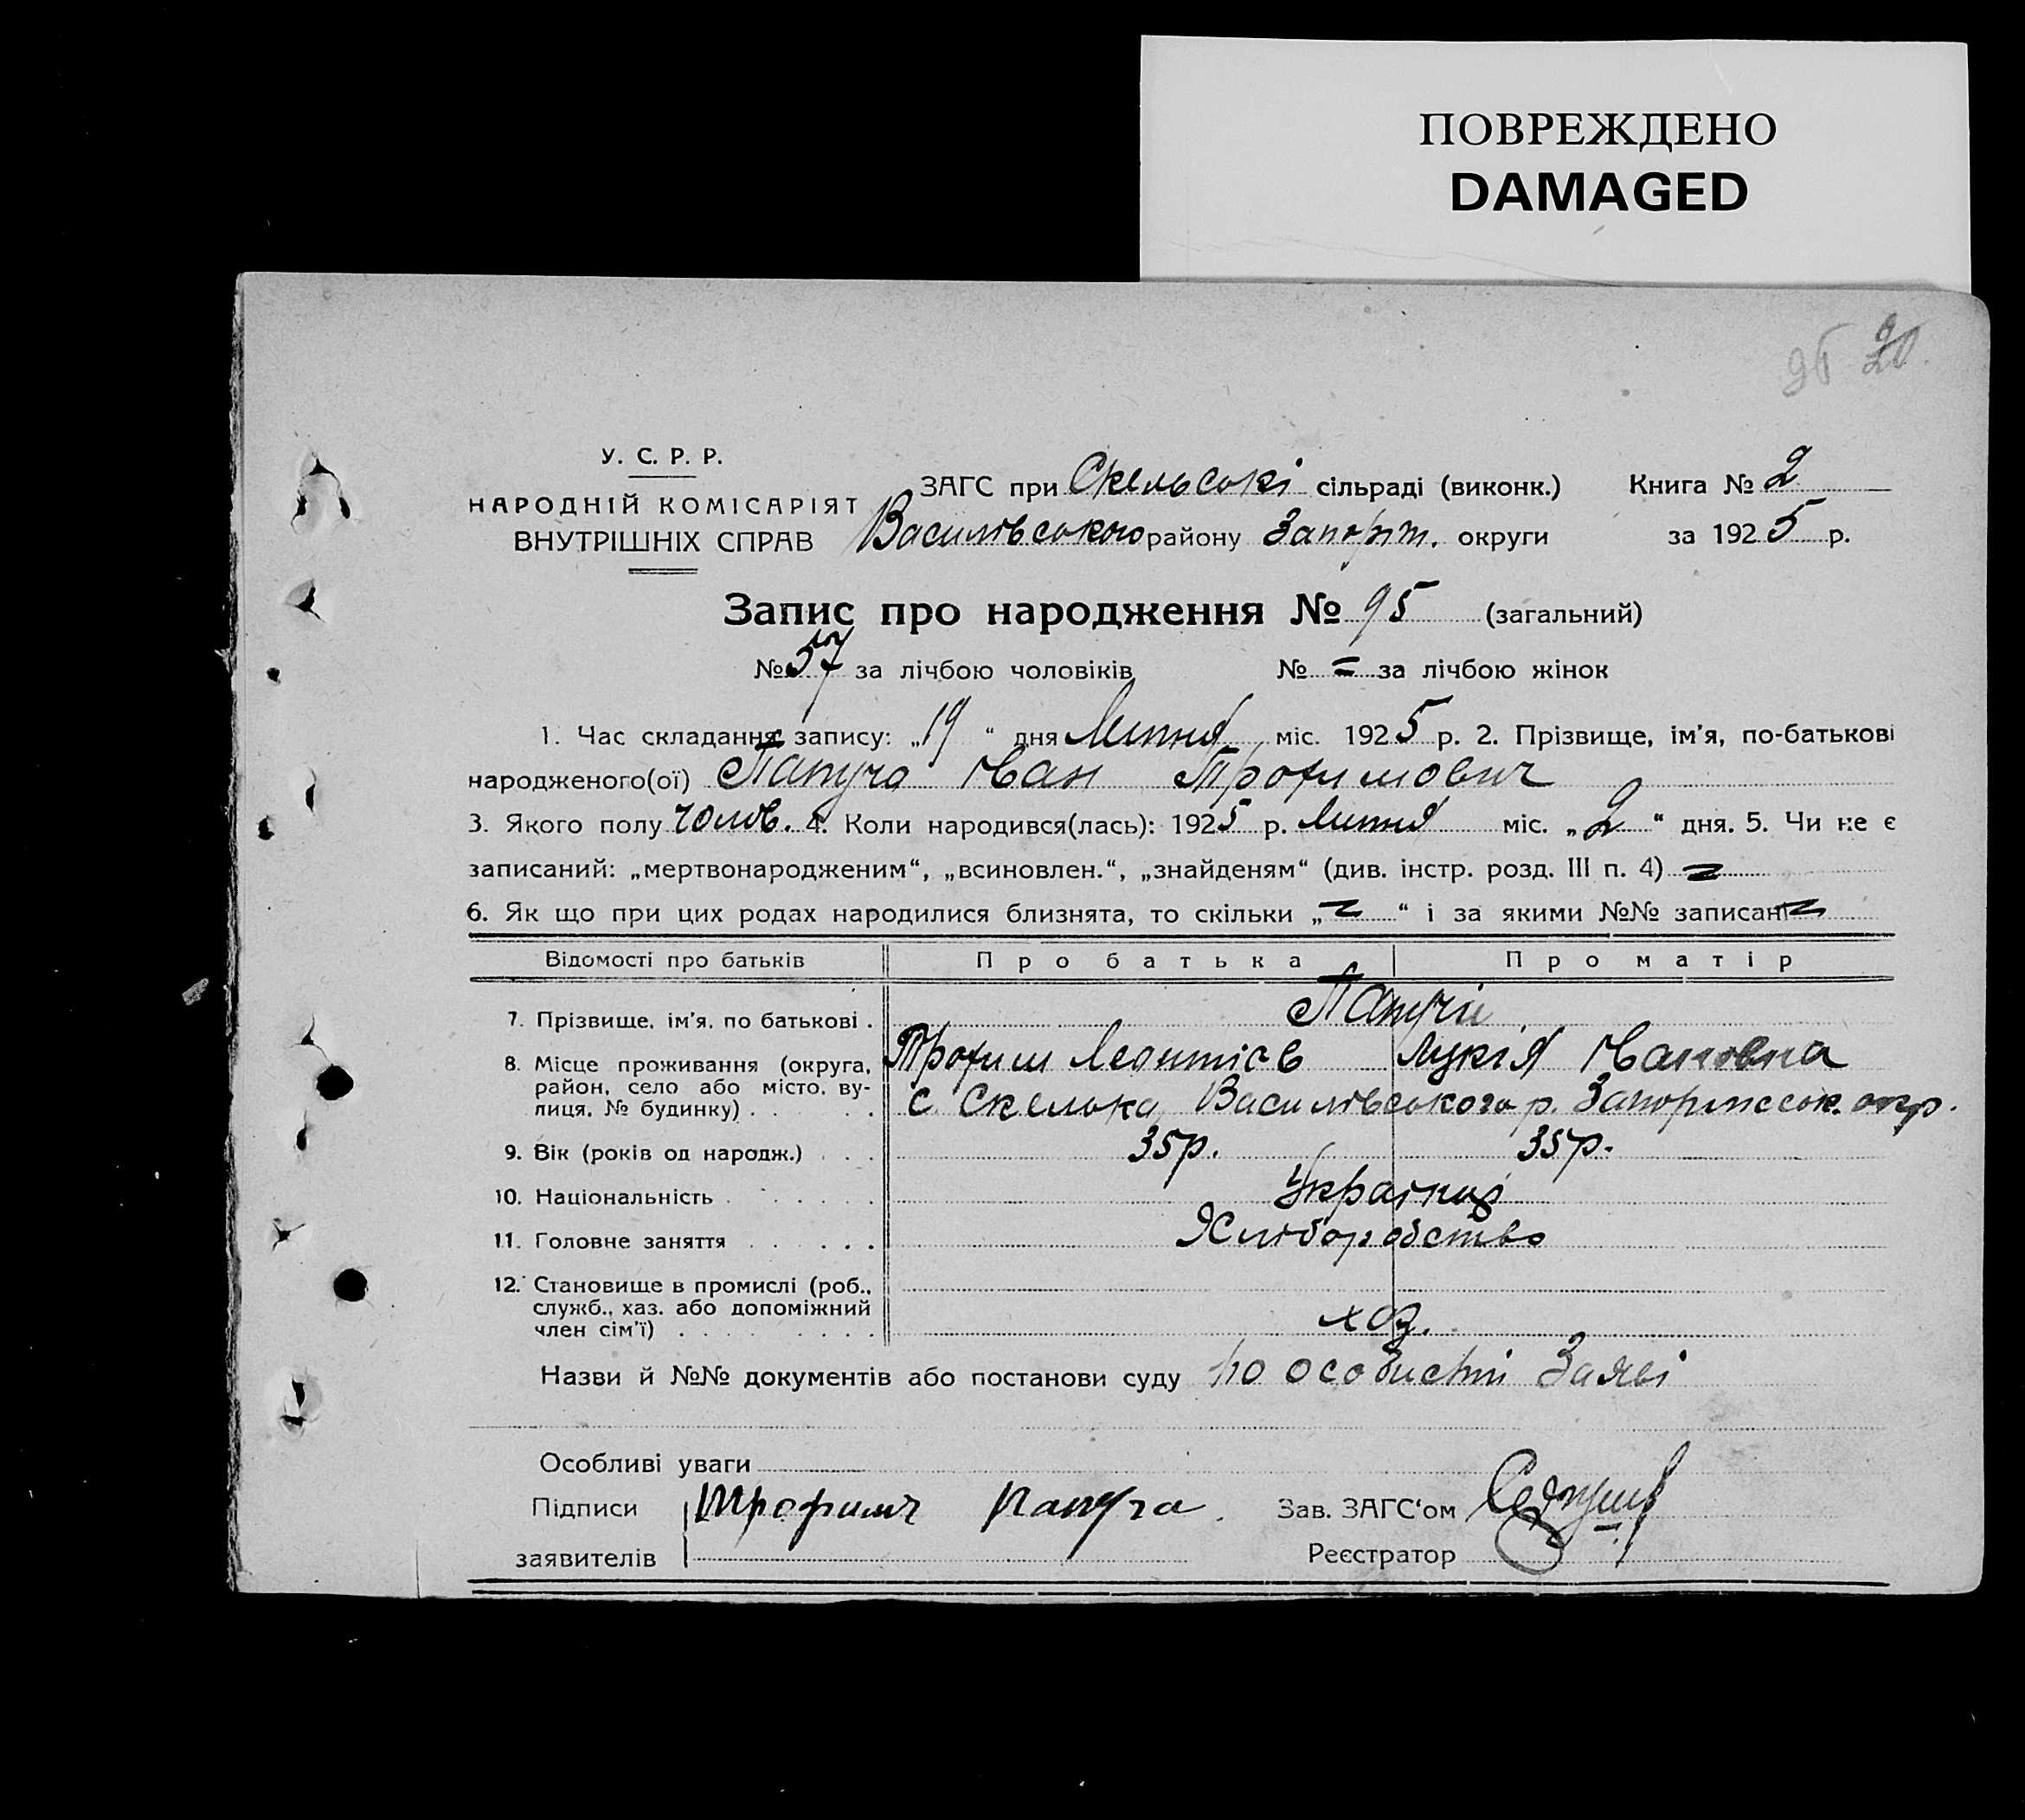 ПОВРЕЖДЕНО
DAMAGED
20
У. С. Р. Р.
НАРОДНІЙ КОМІСАРІЯТ
ВНУТРІШНІХ СПРАВ
ЗАГС при Скельські сільраді (виконк.) Книга № 2
Василівського району Запоріж. округи за 1925 р.
Запис про народження № 95 (загальний)
№ 57 за лічбою чоловіків № = за лічбою жінок
1. Час складання запису: „19“ дня Липня міс. 1925 р. 2. Прізвище, ім'я, по-батькові
народженого(ої) Папуча Иван Трофимович
3. Якого полу чолов. 4. Коли народився(лась): 1925 р. Липня міс. „2“ дня. 5. Чи не є
записаний: „мертвонародженим“, „всиновлен.“, „знайденям“ (див. інстр. розд. III п. 4) =
6. Як що при цих родах народилися близнята, то скільки „=“ і за якими №№ записані =
Відомості про батьків Про батька Про матір
7. Прізвище, ім'я, по батькові . Папучи
Трофим Леонтієв Лукія Ивановна
8. Місце проживання (округа, район, село або місто, вулиця, № будинку) . . . . с. Скелька Василівського р. Запоріжськ. окр.
9. Вік (років од народж.) . . . 35 р. 35 р.
10. Національність . . . . . . . Українці
11. Головне заняття . . . . . Хліборобство
12. Становище в промислі (роб., служб., хаз. або допоміжний член сім'ї) . . . . . . . . хоз.
Назви й №№ документів або постанови суду по особисті Заяві
Особливі уваги
Підписи Трофимъ Папуча Зав. ЗАГС'ом
заявителів Реєстратор